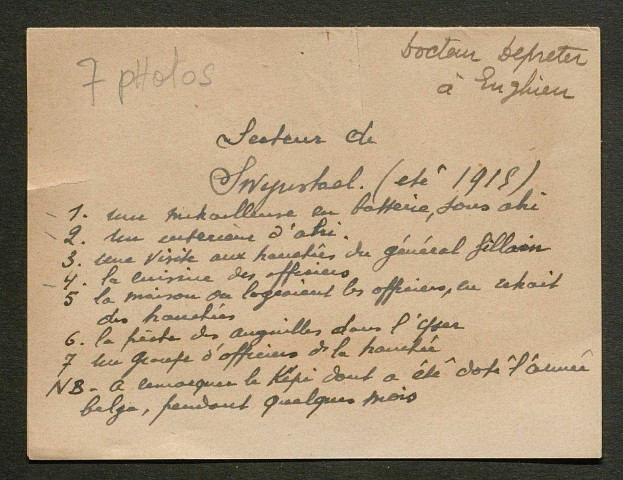 7 pHotos
Docteur Depreter
à Enghien
Secteur de
(eté 1915)
1. une mitrailleuse en batterie, sous abri
2. un interieur d'abri.
3. une visite aux tranchées du général Gillain
4. la cuisine des officiers
5 la maison ou logeaient les officiers, en retrait
des tranchées
6. la pêche des anguilles dans l'Yser
7 un groupe d'officiers de la tranchée
NB - A remarquer le Képi dont a été doté l'armée
belge, pendant quelques mois